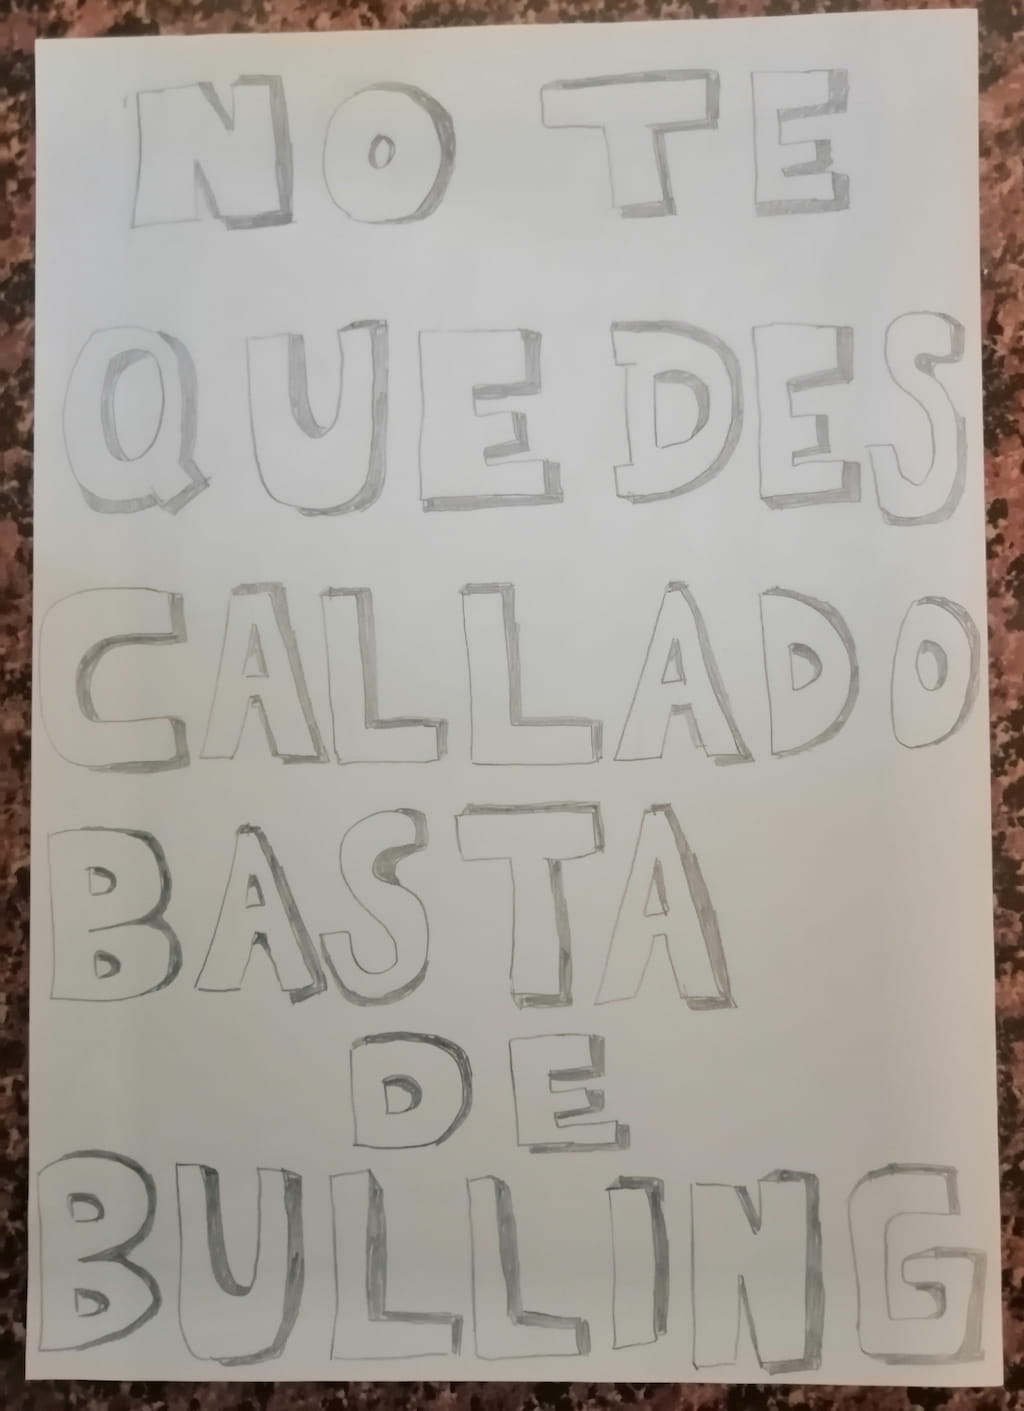 NO TE
QUEDES
CALLADO
BASTA
DE
BULLING